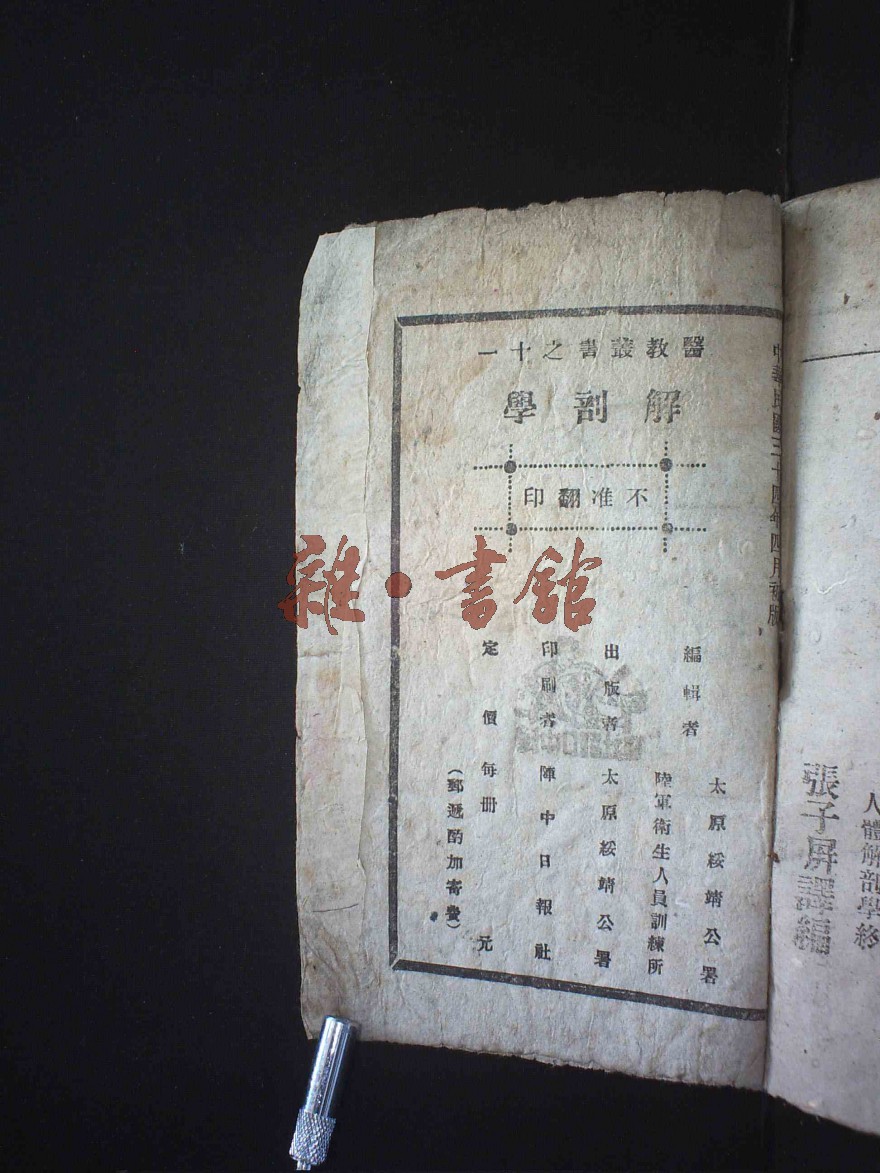 人體解剖學終
張子屏譯編
中華民國三十四年四月初版
醫教叢書之十一
解剖學
不准翻印
編輯者 太原綏靖公署
陸軍衛生人員訓練所
出版者 太原綏靖公署
印刷者 陣中日報社
定價每册 元
(郵遞酌加寄費)
雜·書館